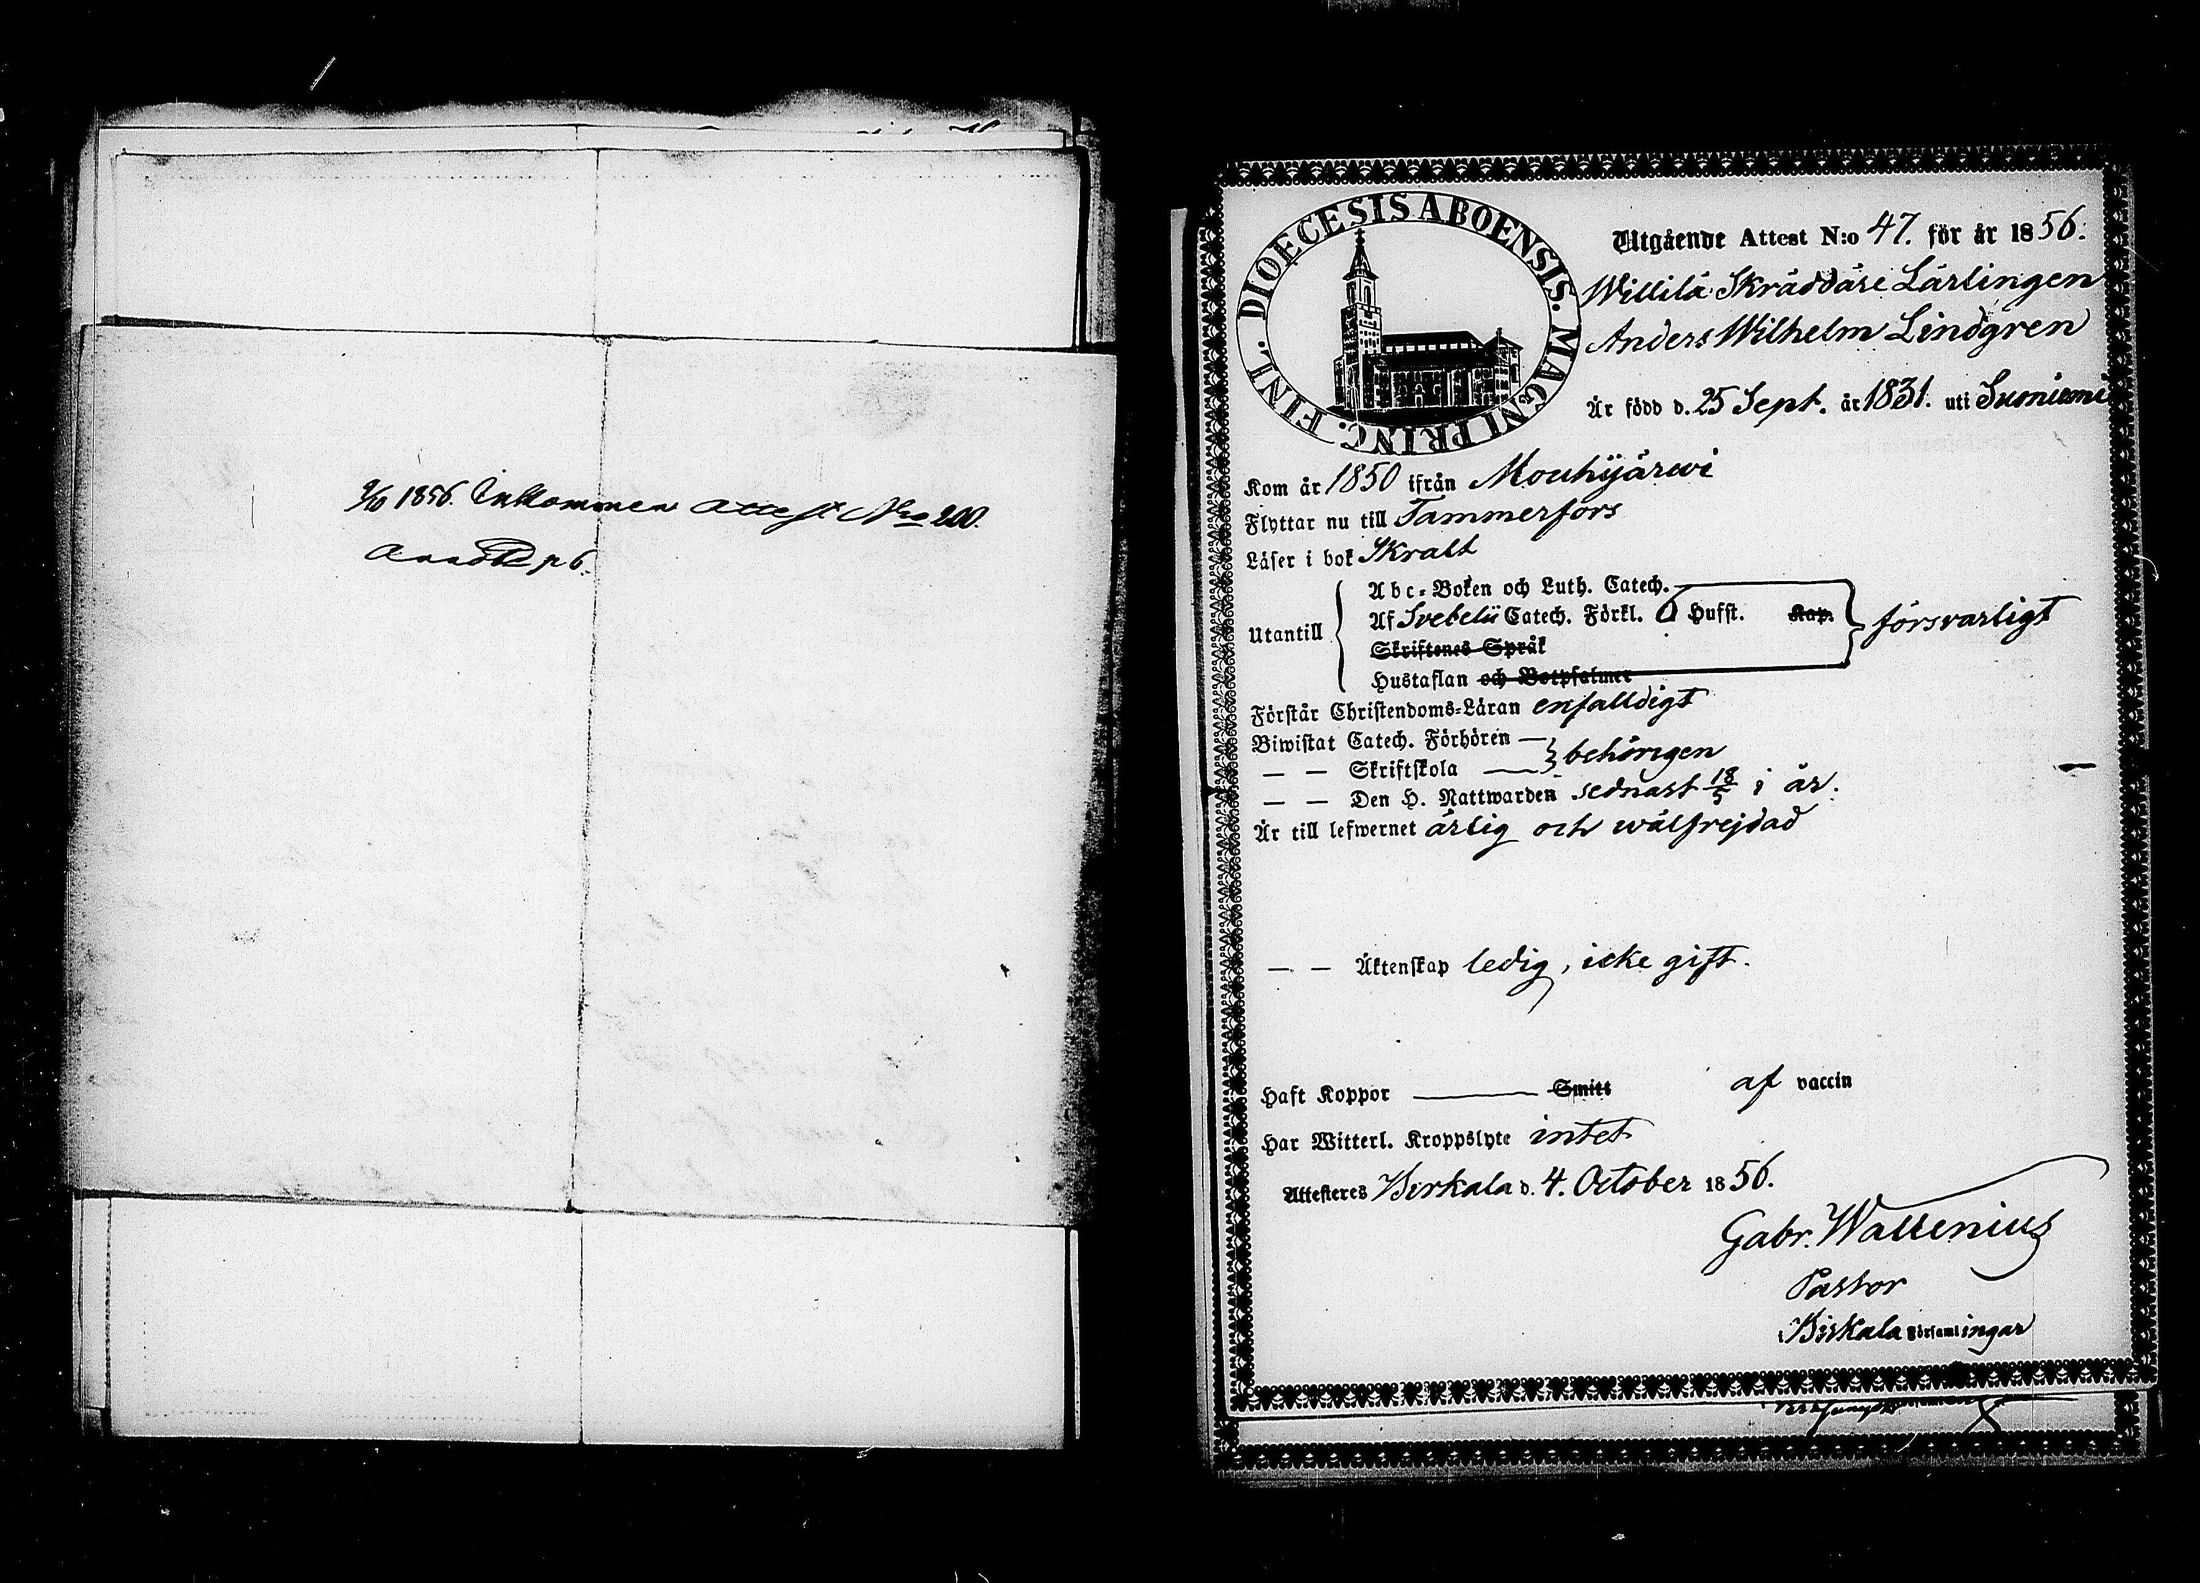 9/10 1856. Inkommen attest No 200.
DIOECESIS ABOENSIS. MAGNI PRINC. FINL.
Utgående Attest N:o 47. för år 1856.
Willilä Skräddäre Lärlingen
Anders Wilhelm Lindgren
Är född d. 25 Sept. år 1831. uti Suoniemi
Kom år 1850 ifrån Mouhijärwi
Flyttar nu till Tammerfors
Läser i bok Skralt
Utantill
Abc-Boken och Luth. Catech.
Af Svebelii Catech. Förkl. 6 Hufst. Kap.
försvarligt
Skriftenes Språk
Hustaflan och Botpsalmer
Förstår Christendoms-Läran enfalldigt
Biwistat Catech. Förhören —
— — Skriftskola —
behörigen
— — Den H. Nattwarden sednast 18/5 i år.
Är till lefwernet ärlig och wälfrejdad
— — Äktenskap ledig, icke gift.
Haft Koppor — Smitt af vaccin
Har Witterl. Kroppslyte intet
Attesteres Birkala d. 4. October 1856.
Gabr. Wallenius
Pastor
i Birkala Församlingar